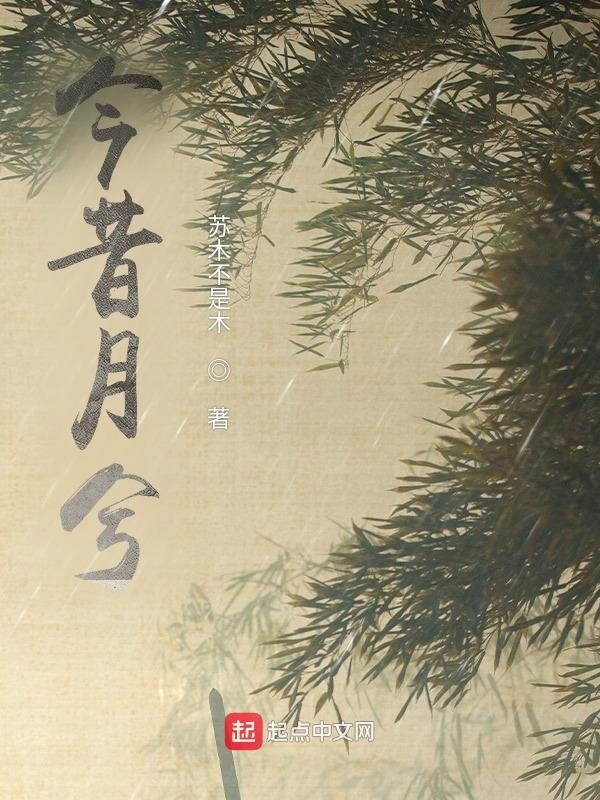 今昔月兮
苏木不是木 ◎ 著
起 起点中文网